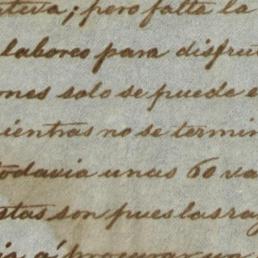 utiva; pero falta la
laboreo para disfru
ones solo se puede e
ientras no se termin
todavia unas 60 va
stas son pues las ra
is á procurar un